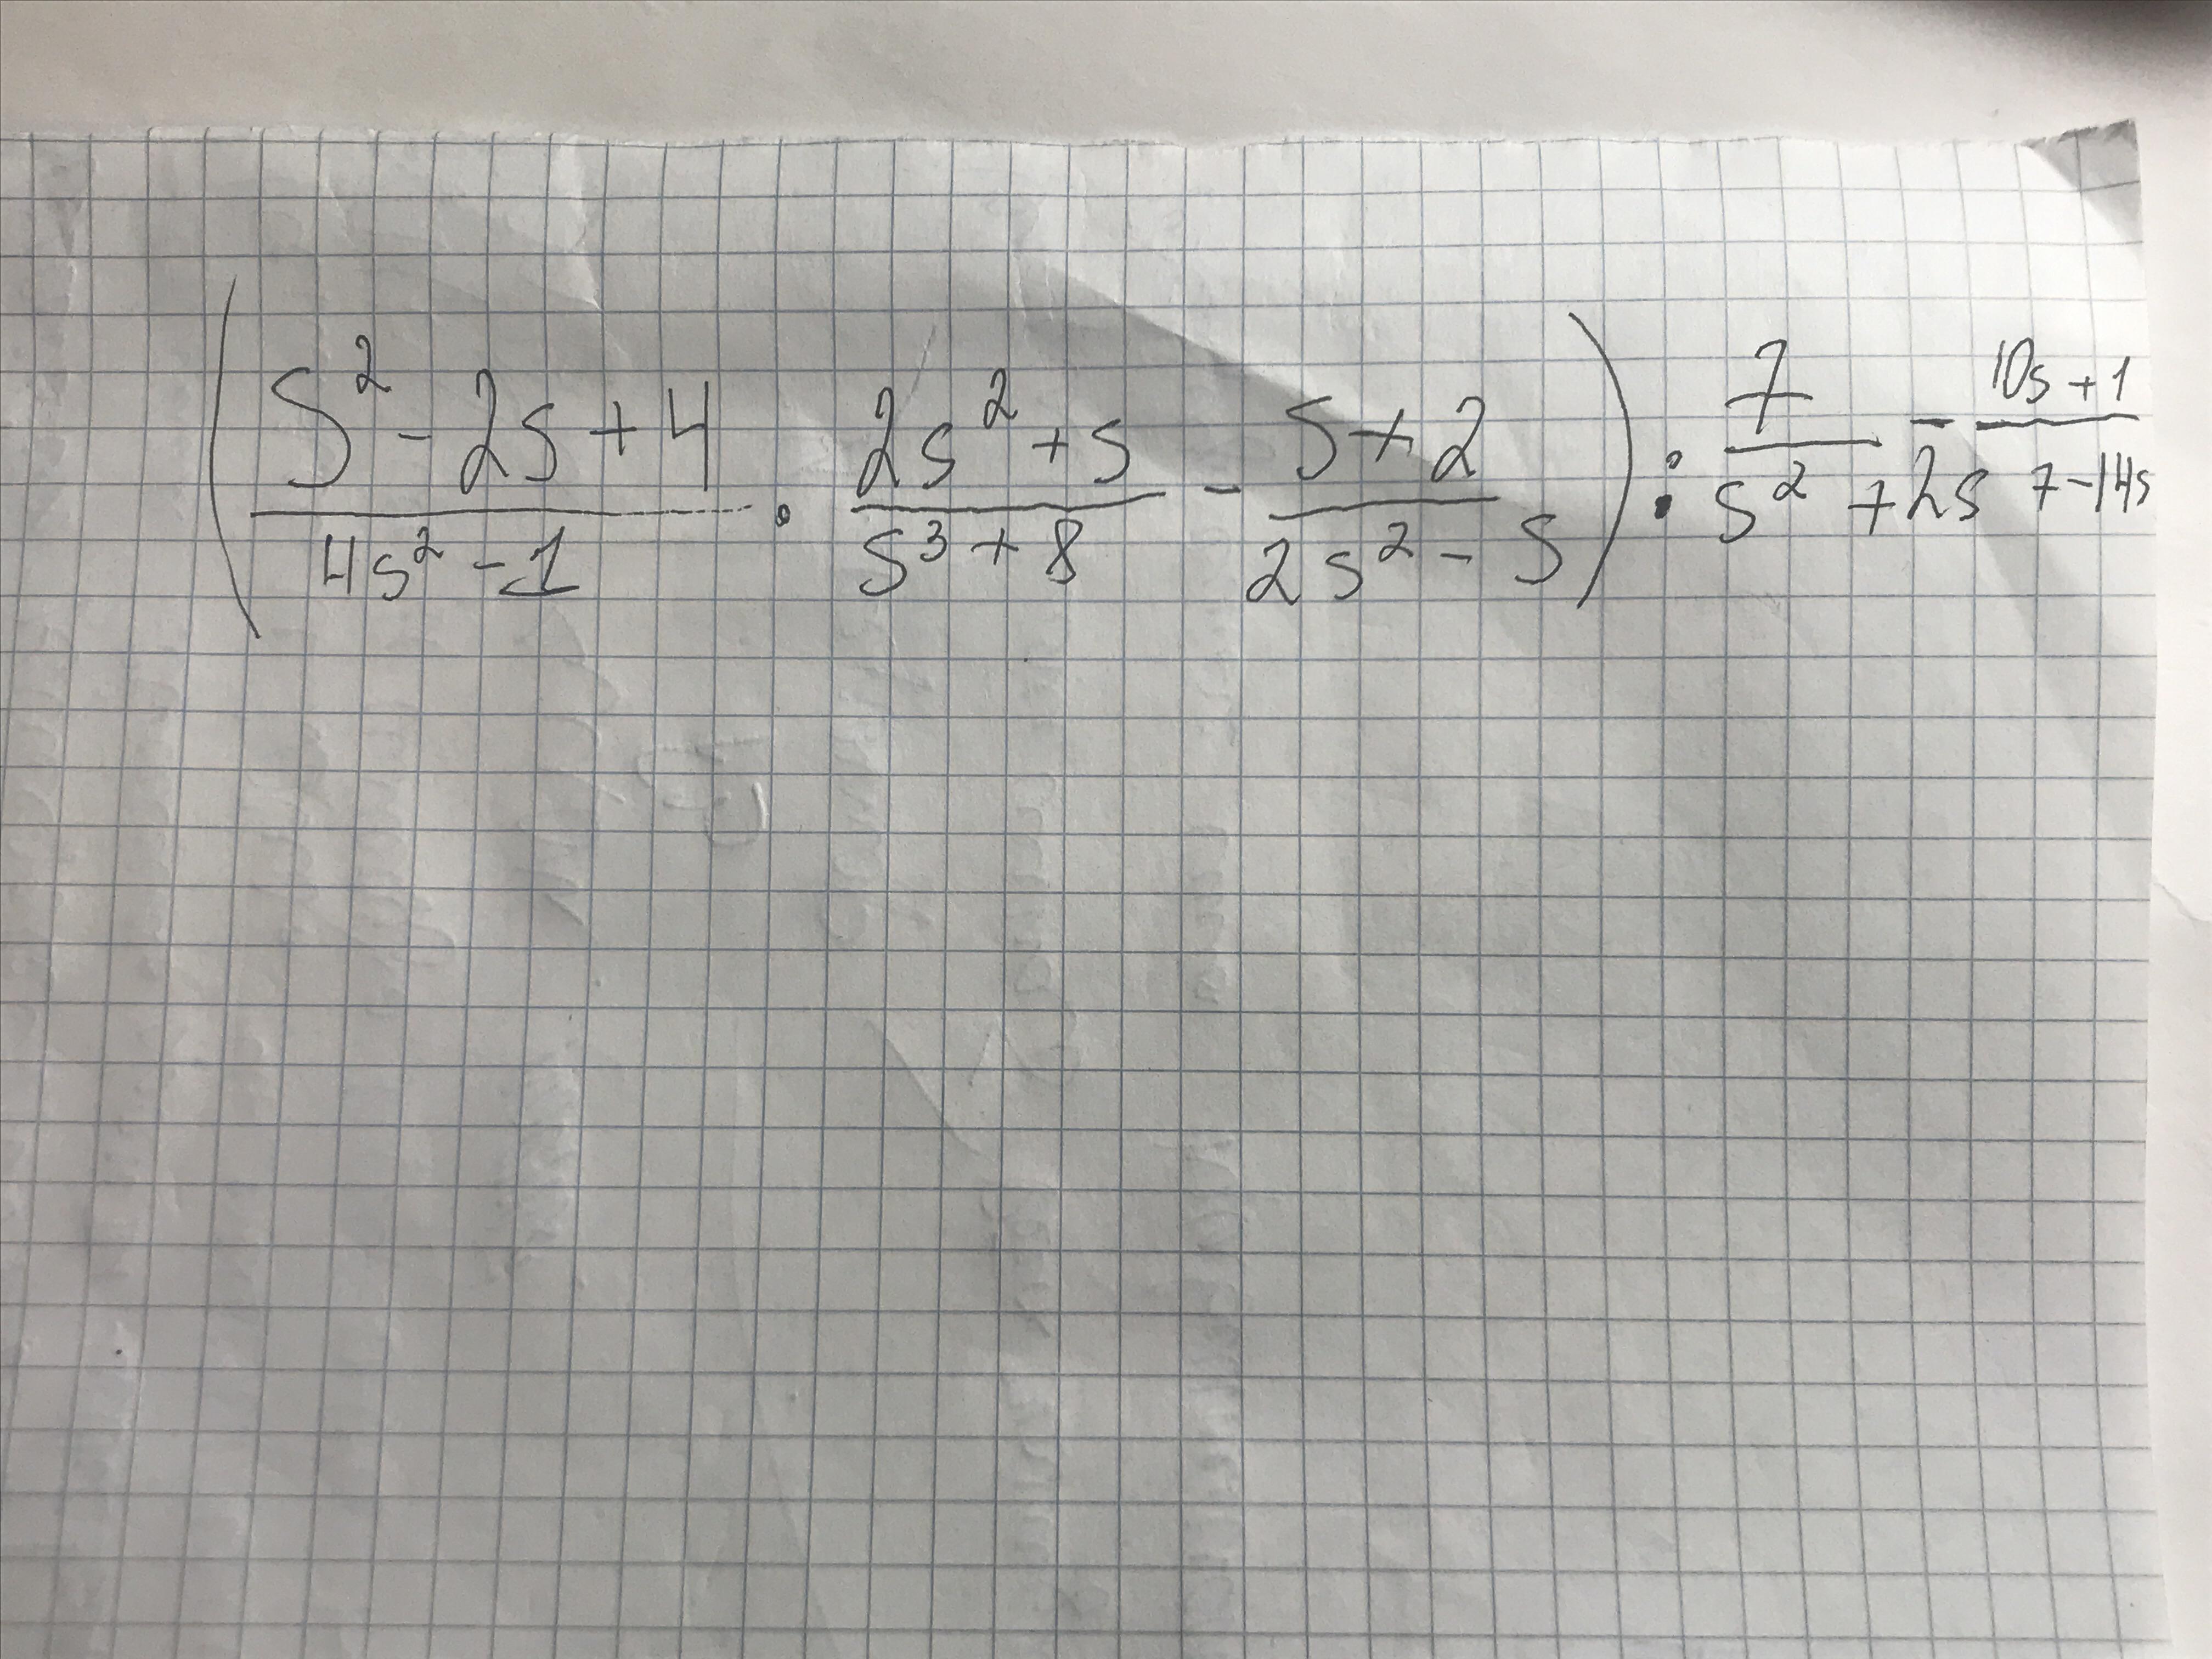 (\frac{s^2-2s+4}{4s^2-1} \cdot \frac{2s^2+s}{s^3+8} - \frac{s+2}{2s^2-s}) : \frac{7}{s^2+2s} - \frac{10s+1}{7-14s}